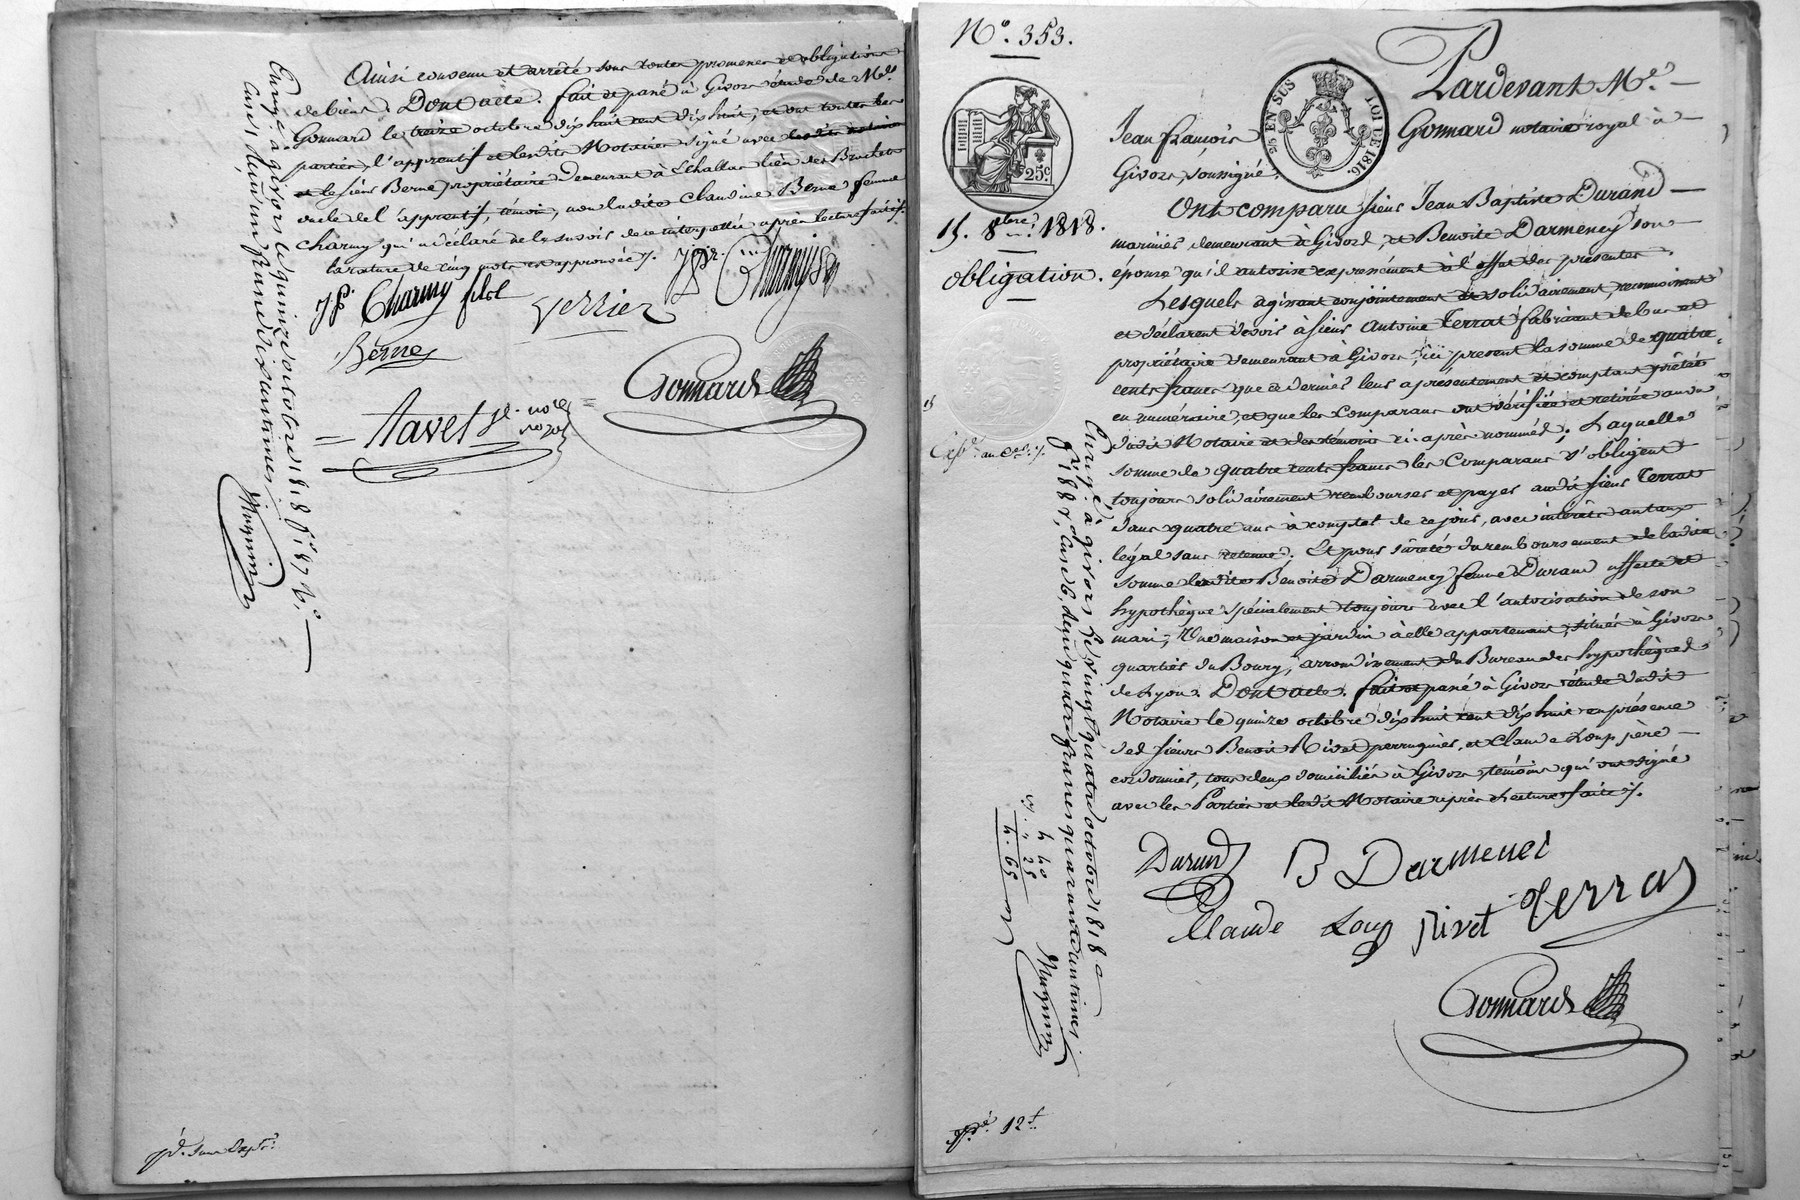 Ainsi convenu et arrêté sous toutes promesses et obligations
de biens. Dont acte. fait et passé à Givors étude de Me
Gonnard le treize octobre dix huit cent dix huit, et ont toutes les
parties, l'apprentif et lesdits Notaires signé avec
et le sieur Berne propriétaire demeurant à Echallas lieu des
oncle de l'apprentif, témoin, non ladite Claudine Berne femme
Charmy qui a déclaré ne le savoir de ce interpellée après lecture faite.
la rature de cinq mots est approuvée.
JP Charmy fils
Verrier
Berne
Gonnard
Tavel
Enregé à givors le quinze octobre 1818 fo. 87 Ro.
Case 1. d'un franc dix centimes.
Mugnier
No. 353.
25 EN SUS
LOI DE 1816.
25c.
15. 8bre 1818.
obligation.
Expd. au Cer.
Pardevant Me.
Jean françois Gonnard notaire royal à
Givors, soussigné,
Ont comparu sieur Jean Baptiste Durand
marinier demeurant à Givors, et Benoite Darmeney son
épouse qu'il autorise expressément à l'effet des présentes.
Lesquels agissant conjointement et solidairement, reconnaissent
et déclarent devoir à sieur Antoine Terrat fabricant de bas et
propriétaire demeurant à Givors, ici présent la somme de quatre
cents francs que ce dernier leur a présentement et comptant prêtée
en numéraire, et que les Comparans ont vérifiée et retirée au vu
dudit Notaire et des témoins ci-après nommés; Laquelle
somme de quatre cents francs les Comparans s'obligent
toujours solidairement rembourser et payer audit sieur Terrat
dans quatre ans à compter de ce jour, avec intérêts au taux
légal sans retenue. Et pour sûreté du remboursement de ladite
somme ladite Benoite Darmeney femme Durand affecte et
hypothèque spécialement toujours avec l'autorisation de son
mari, Une maison et jardin à elle appartenant, situés à Givors
quartier du Bourg, arrondissement du Bureau des hypothèques
de Lyon. Dont acte. fait et passé à Givors étude dudit
Notaire le quinze octobre dix huit cent dix huit en présence
des sieurs Benoit Rivet perruquier, et Claude Loup père
cordonnier, tous deux domiciliés à Givors, témoins qui ont signé
avec les Parties et ledit Notaire après Lecture faite.
Durand B Darmenei
Claude Loup Rivet Terrat
Gonnard
Enregé à givors le vingt quatre octobre 1818
fo. 88 Vo, Case 6, deux quatre francs quarante centimes
Mugnier
4 40
25
4. 65
12f